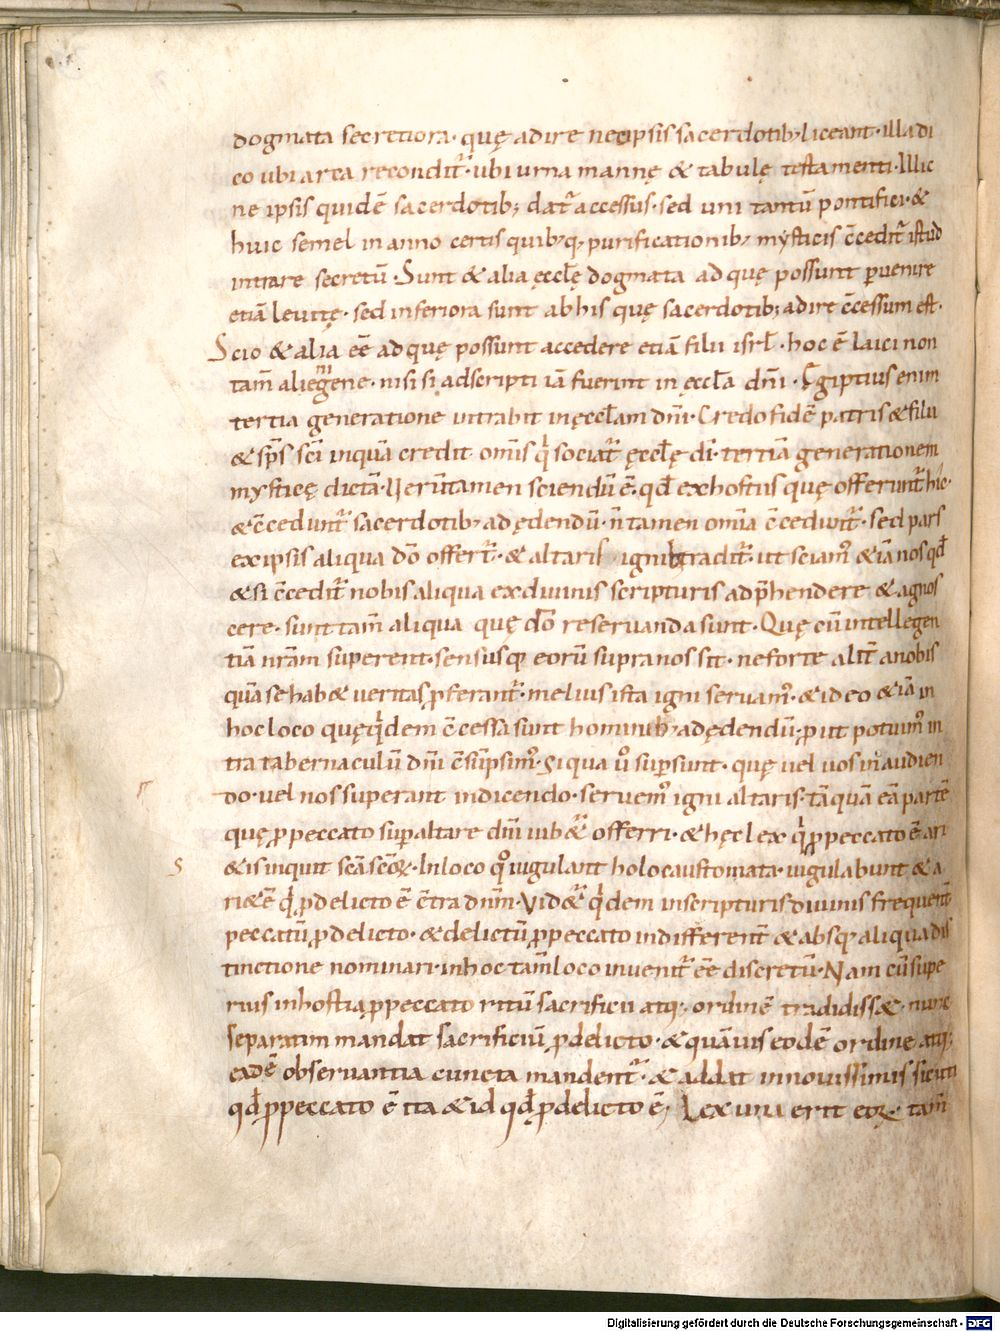 dogmata secretiora· quę adire nec ipsis sacerdotib; liceant· illa di
co ubi arca recondit᷑· ubi urna mannę & tabulę testamenti· Illic
ne ipsis quidē sacerdotib; dat᷑ accessus· sed uni tantū pontifici· &
huic semel in anno certis quib;q; purificationib; mysticis c̄cedit᷑ istud
intrare secretū· Sunt & alia ęccl̄ę dogmata ad quę possunt puenire
etiā leuitę· sed inferiora sunt ab his quę sacerdotib; adire c̄cessum est·
Scio & alia eē ad quę possunt accedere etiā filii isrl̄· hoc ē laici non
tam̄ alienigene· nisi si adscripti iā fuerint in ęccl̄a dn̄i· Egiptius enim
tertia generatione intrabit in ęccl̄am dn̄i· Credo fidē patris & filii
& sp̄s sc̄i in quā credit om̄is q̇ sociat᷑ ęccl̄ę dī· tertiā generationem
mysticę dictā· Uerūtamen sciendū ē· qd̄ ex hostiis quę offerunt᷑ hic·
& c̄cedunt᷑ sacerdotib; ad ędendū· n̄ tamen om̄ia c̄cedunt᷑· sed pars
ex ipsis aliqua dō offert᷑· & altaris ignib; tradit᷑· ut sciam᷒ & iā nos qd̄
& si c̄cedit᷑ nobis aliqua ex diuinis scripturis adp̄hendere & agnos
cere· sunt tam̄ aliqua quę dō reseruanda sunt· Quę cū intellegen
tiā nr̄am superent· sensusq; eorū supra nos sit· ne forte alit̄ a nobis
quā se hab& ueritas pferant᷑· melius ista igni seruam᷒· & ideo & iā in
hoc loco quę q̇dem c̄cessa sunt hominib; ad ędendū· p ut potuim᷒ in
tra tabernaculū dn̄i c̄sūpsim᷒· Si qua u᷒ supsunt· quę uel uos in audien
do· uel nos superant in dicendo· seruem᷒ igni altaris· tāquā eā partē
quę p peccato sup altare dn̄i iub&᷑ offerri· & hęc lex q̇ p peccato ē ari
&is inquit sc̄a sc̄oꝝ· In loco quo iugulant holocaustomata· iugulabunt & a
ri&ē q̇ p delicto ē c̄tra dn̄m· Vid&᷑ q̇dem in scripturis diuinis frequent̄
peccatū p delicto· & delictū p peccato indifferent̄ & absq; aliqua dis
tinctione nominari· in hoc tam̄ loco inuenit᷑ eē discretū· Nam cū supe
rius in hostia p peccato ritū sacrificii atq; ordinē tradidiss&· nunc
separatim mandat sacrificiū p delicto· & quāuis eodē ordine atq;
eadē obseruantia cuncta mandent᷑· & addat in nouissimis sicuti
qd̄ p peccato ē ita & id qd̄ p delicto ē; Lex una erit eoꝝ· tam̄
r
s
Digitalisierung gefördert durch die Deutsche Forschungsgemeinschaft - DFG